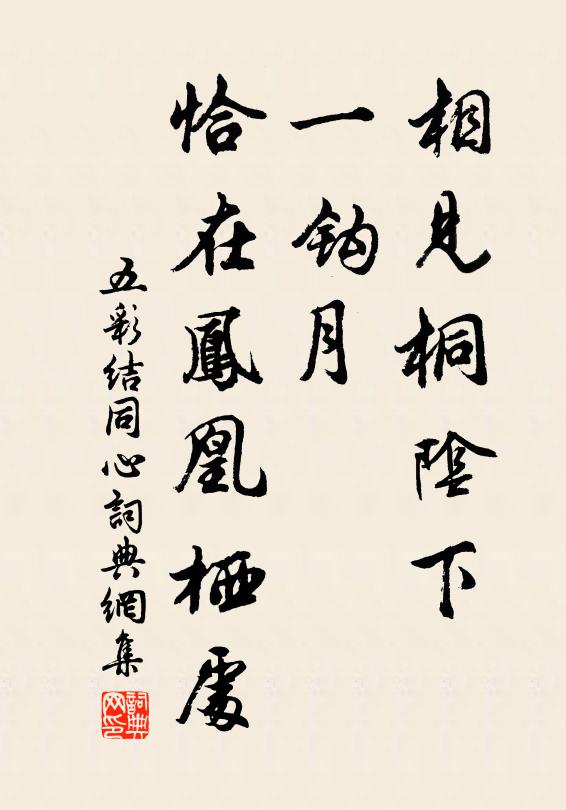 相見桐陰下
一鈎月
恰在鳳凰栖處
五彩結同心詞典網集
詞典网印